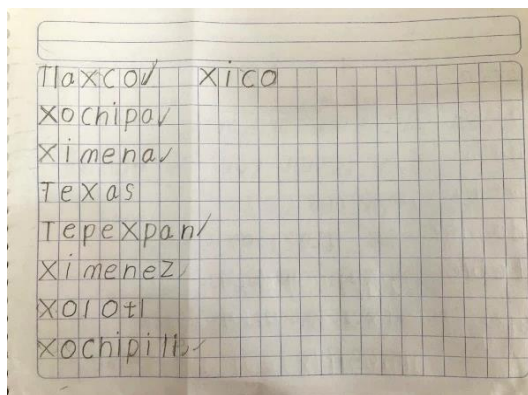 Tlaxco✓ Xico
Xochipa✓
Ximena✓
Texas
Tepexpan✓
Ximenez✓
Xolotl
Xochipilli✓